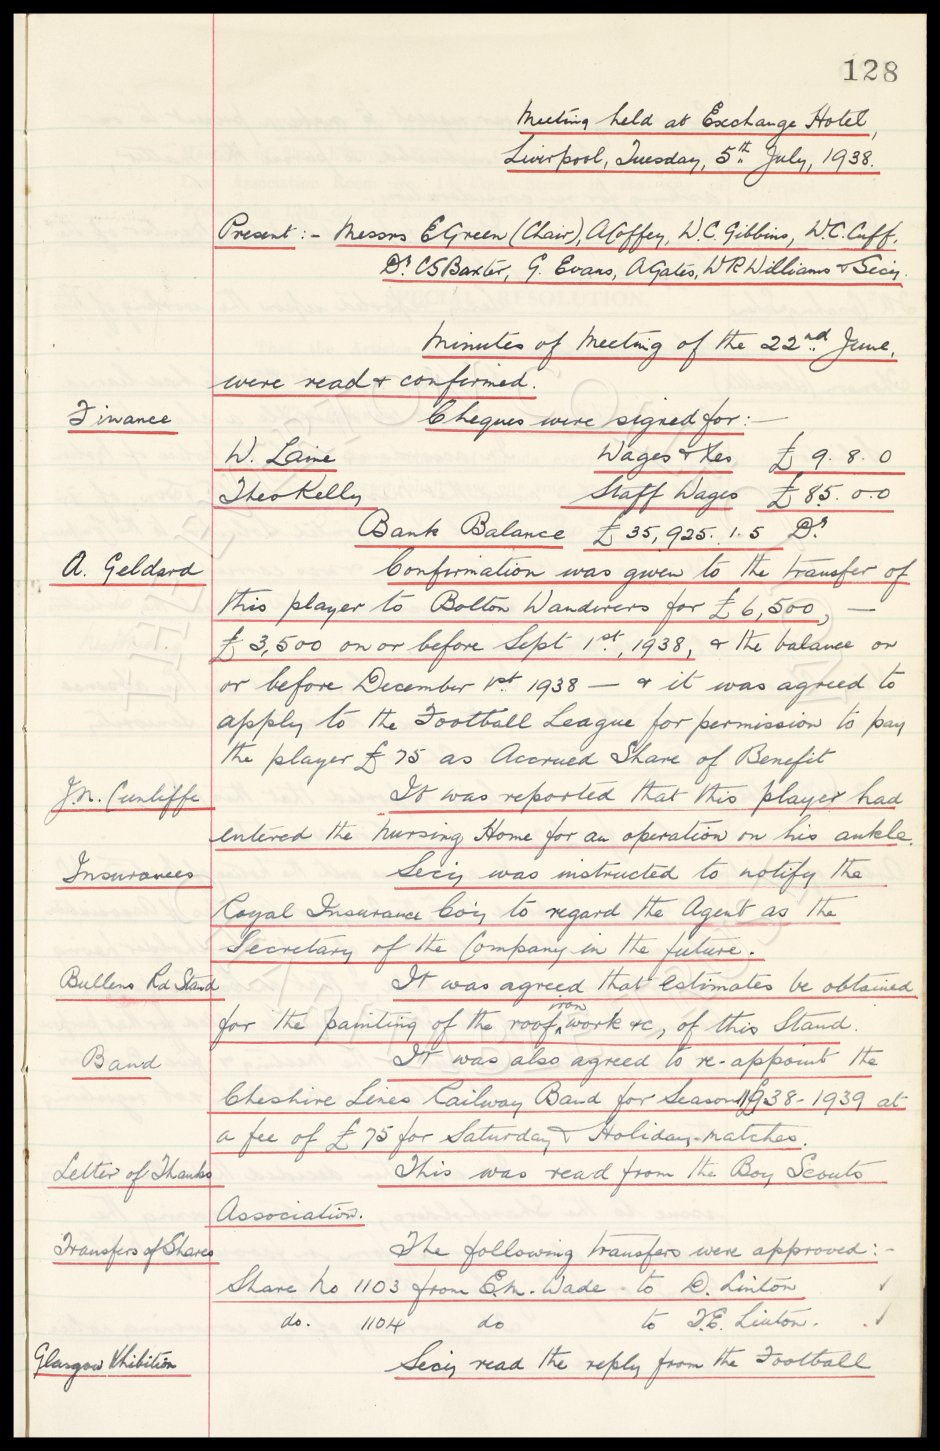 128
Meeting held at Exchange Hotel,
Liverpool, Tuesday, 5th July, 1938.
Present :- Messrs E Green (Chair), A Coffey, W.C. Gibbins, W.C. Cuff.
Dr CS Baxter, G. Evans, A Gates, W R Williams & Secy.
Minutes of Meeting of the 22nd June,
were read & confirmed.
Finance
Cheques were signed for:-
W. Laine Wages & Xes £ 9. 8. 0
Theo Kelly Staff Wages £ 85. 0.0
Bank Balance £ 35,925. 1. 5 Dr
A. Geldard
Confirmation was given to the transfer of
this player to Bolton Wanderers for £ 6,500, —
£ 3,500 on or before Sept 1st, 1938, & the balance on
or before December 1st 1938 — & it was agreed to
apply to the Football League for permission to pay
the player £ 75 as Accrued Share of Benefit
J.N. Cunliffe
It was reported that this player had
entered the Nursing Home for an operation on his ankle.
Insurances
Secy was instructed to notify the
Royal Insurance Co'y to regard the Agent as the
Secretary of the Company in the future.
Bullens Rd Stand
It was agreed that estimates be obtained
for the painting of the roof, iron work &c, of this Stand.
Band
It was also agreed to re-appoint the
Cheshire Lines Railway Band for Season 1938-1939 at
a fee of £ 75 for Saturday & Holiday matches.
Letter of Thanks
This was read from the Boy Scouts
Association.
Transfers of Shares
The following transfers were approved:-
Share No 1103 from E.M. Wade to D. Linton ✓
do. 1104 do to T.E. Linton. ✓
Glasgow Xhibition
Secy read the reply from the Football